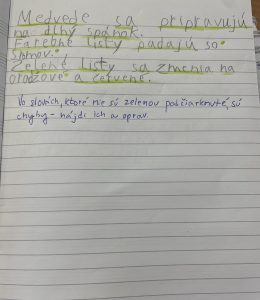 Medvede sa pripravujú
na dlhý spánok.
Farebné listy padajú so
stromov.
Zelené listy sa zmenia na
oranžové a červené.
Vo slovách, ktoré nie sú zelenou podčiarknuté, sú
chyby - nájdi ich a oprav.